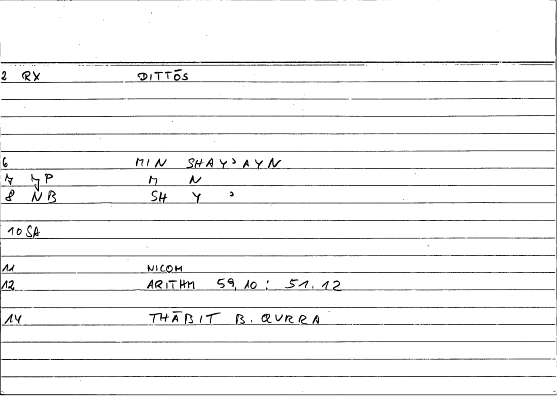 2 RX DITTŌS
6 MIN SHAYʾAYN
7 7P M N
8 NB SH Y ʾ
10 SA
11 NICOM
12 ARITHM 59,10 : 51.12
14 THĀBIT B. QURRA